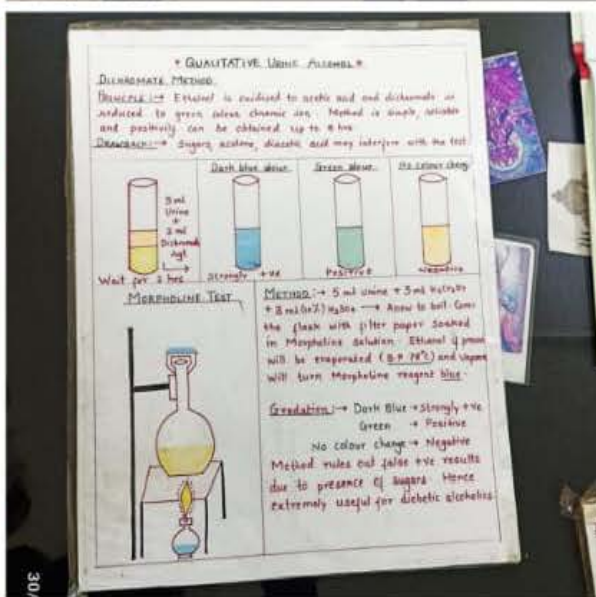 * QUALITATIVE URINE ALCOHOL *
DICHROMATE METHOD
PRINCIPLE :→ Ethanol is oxidised to acetic acid and dichromate is
reduced to green colour chromic ion. Method is simple, reliable
and positivity can be obtained up to 4 hrs
DRAWBACK :→ Sugars, acetone, diacetic acid may interfere with the test
5 ml
Urine
+
2 ml
Dichromate
Agt
Wait for 2 hrs
Dark blue colour
Strongly +ve
Green colour
Positive
No colour change
Negative
MORPHOLINE TEST
METHOD :→ 5 ml urine + 3 ml
+ 8 ml H2SO4 → Allow to boil
the flask with filter paper soaked
in Morpholine solution. Ethanol if present
will be evaporated (B.P 78°C) and vapours
will turn Morpholine reagent blue.
Gradation :→ Dark Blue → Strongly +ve
Green → Positive
No colour change → Negative
Method rules out false +ve results
due to presence of sugars Hence
extremely useful for diebetic alcoholics
30/